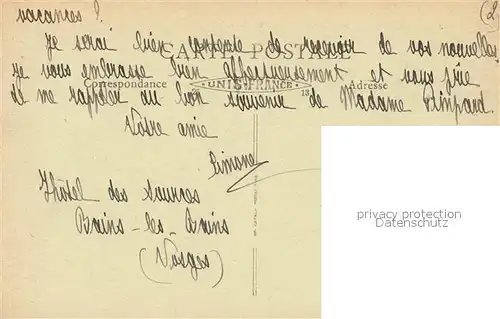 vacances ? (2
Je serai bien contente de recevoir de vos nouvelles
CARTE POSTALE
je vous embrasse bien affectueusement et vous prie
Correspondance UNIS-FRANCE Adresse
de me rappeler au bon souvenir de Madame
Votre amie
Simone
Hôtel des Sources
Bains-les-Bains
(Vosges)
privacy protection
Datenschutz